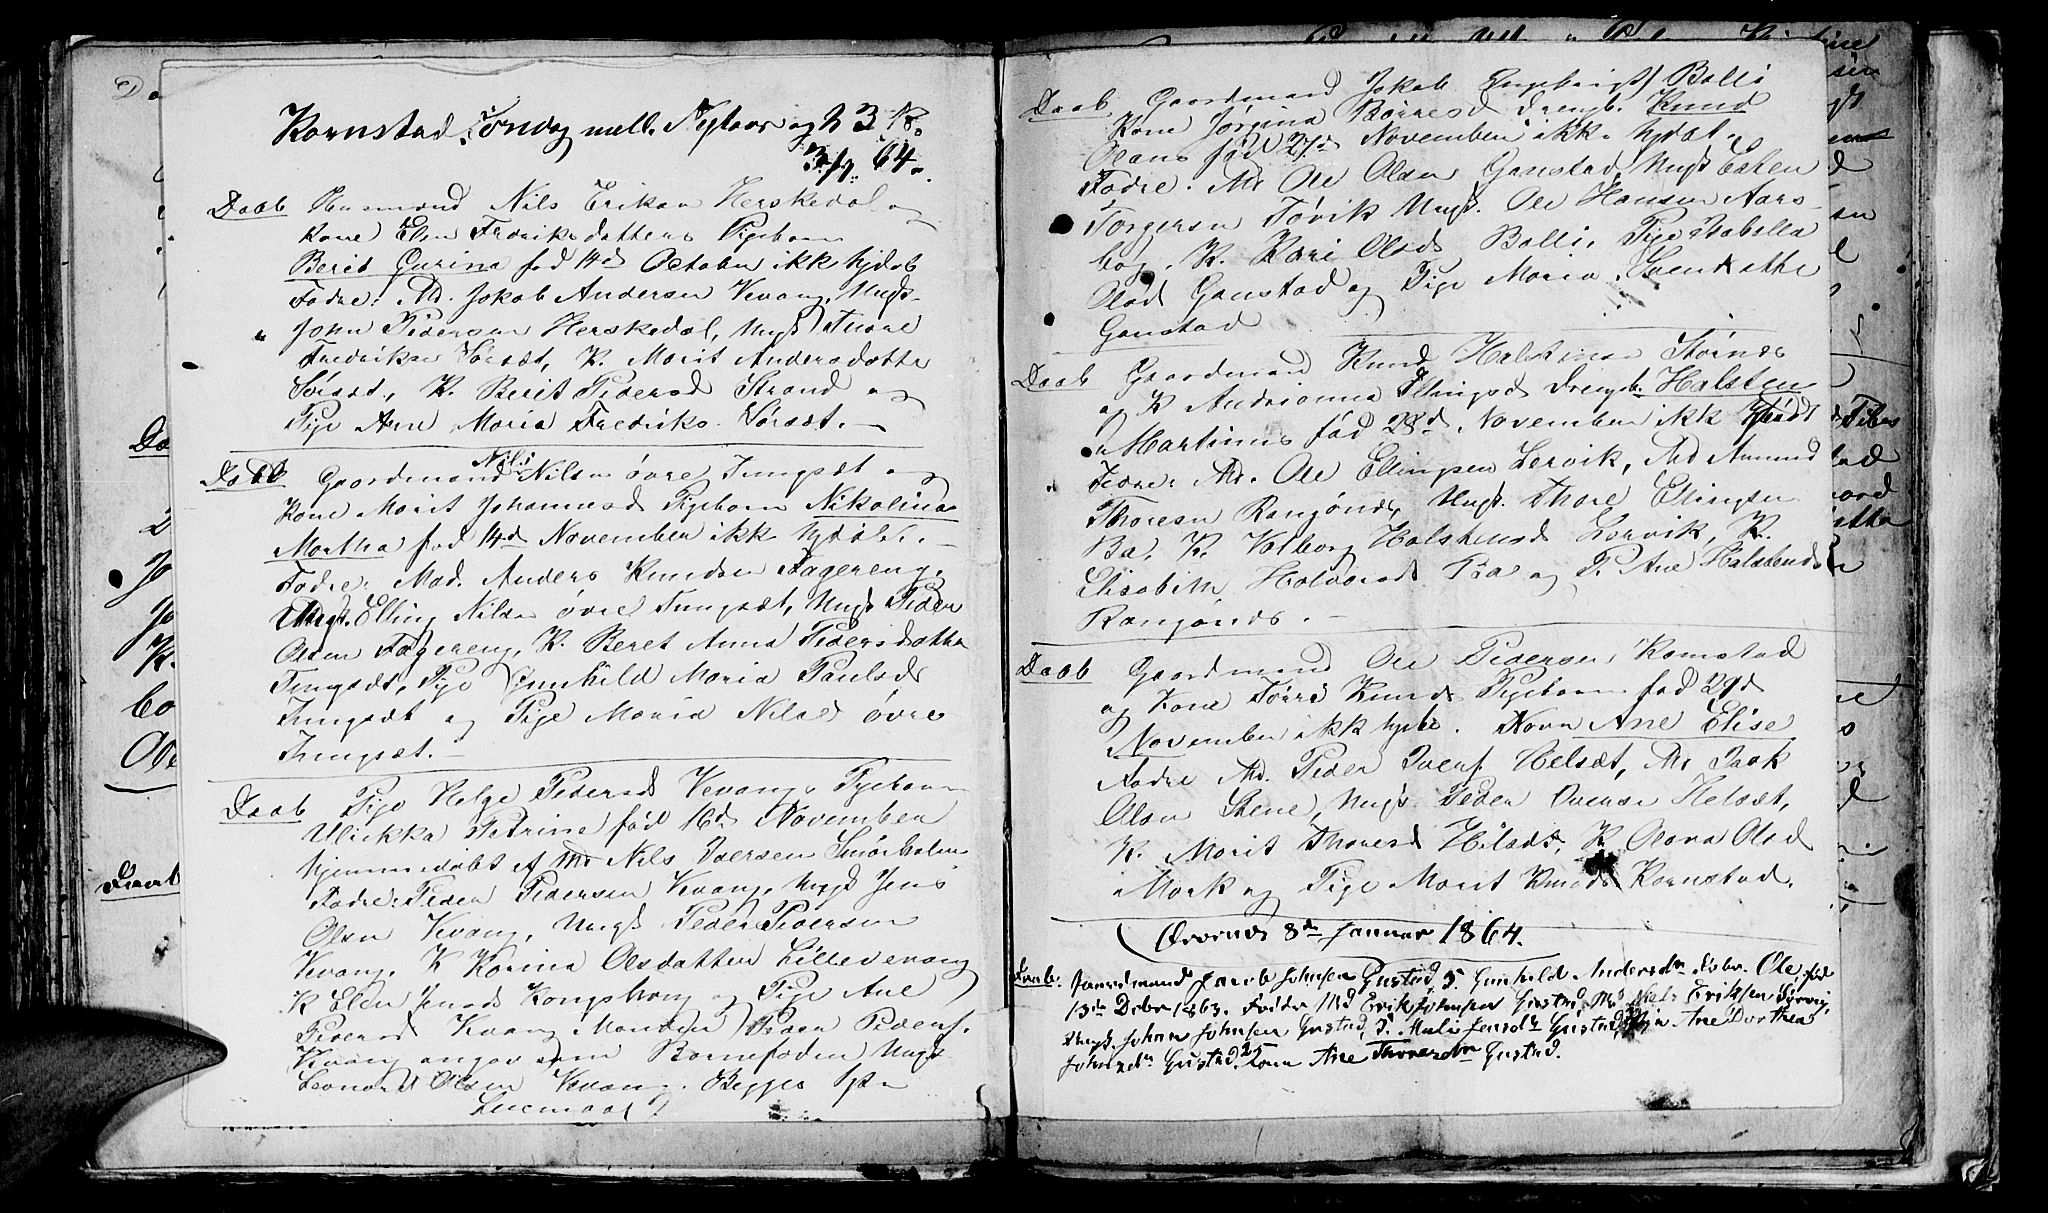 Kornstad, Søndag mell. Nytaar og H3K.
3/1. 64.
Daab Husmand Nils Eriksen Herskedal og
Kone Elen Fredriksdatters Pigebarn
Berit Gurina fød 14de October ikk hjdøb
Fadre: Md. Jakob Andersen Kevang, Ungk.
John Pedersen Herskedal, Ungk Thore
Fredriksen Sørsæt, K. Marit Andersdatte
Sørsæt, K. Berit Pedersd Strand og
Pige Ane Maria Fredriks. Sørsæt. —
Daab Gaardmand Nils Nilsen øvre Tungsæt og
Kone Marit Johannesd Pigebarn Nikolina
Martha fød 14de November ikk hjdøbt. —
Fadre: Md. Anders Knudsen Fagereng,
Ungk. Elling Nilsen øvre Tungsæt, Ungk Peder
Olsen Fagereng, K. Beret Anna Pedersdatter
Tungsæt, Pige Gunhild Maria Paulsd
Tungsæt og Pige Maria Nilsd øvre
Tungsæt. —
Daab Pige Helge Pedersd Kevangs Pigebarn
Ulrikka Petrine fød 16de November
hjemmedøbt af Md Nils Iversen Smørholm
Fadre: Peder Pedersen Kevang, Ungk Jens
Olsen Kvang, Ungk Peder Pedersen
Kevang, K Karina Olsdatter Lillevevang
K Elen Jensd Kongshaug og Pige Ane
Pedersd Kvang Manden Peder Peders.
Kvang angav som Barnefader Ungk
Leonard Olsen Kevang. Begges 1ste
Leiermaal.
Daab Gaardmand Jakob Engebrigts Bolli
Kone Jørgina Børresd Drengb. Knud
Olaus fød 27de November ikk. hjdøt.
Fadre. Md Ole Olsen Ganstad, Ungk Esten
Torgersen Tøvik Ungk. Ole Hansen Aars-
bog, K. Kari Olsd Bolli, Pige Isabella
Olsd Ganstad og Pige Maria Svendsdatte
Ganstad
Daab Gaardmand Knud Halstensen Størnes
og K Andrianna Ellingsd Drengb. Halsten
Martinus fød 28de November ikk hjdøbt
Fadre: Md. Ole Ellingsen Lervik, Md Amund
Thoresen Ramsønds, Ungk. Thore Ellingsen
Bø, K. Valborg Halstensd Lervik, K.
Elisabeth Halvorsd Bø og P. Ane Halstensd
Ramsønds. —
Daab Gaardmand Ole Pedersen Kornstad
og Kone Tørri Knudsd Pigebarn fød 29de
November ikk hjdbt. Navn Ane Elise
Fadre Md. Peder Ivers. Helsæt, Md Isak
Olsen Stene, Ungk Peder Iversen Helsæt,
K. Marit Thoresd Helsæt, K Olava Olsd
Mork og Pige Marit Knudsd Kornstad.
Qvernes 8de Januar 1864.
Daab. Gaardmand Jacob Johnsen Gustad, 5. Gunhild Andersdtr Dobn. Ole, fød
13de Debr 1863. Fadre Md Erik Johnsen Gustad, Md Niels Eriksen Sørvig,
Ungk. Johan Johnsen Gustad, P. Mali Jensdtr Gustad, Pige Ane Dorthea
Johnsdtr Gustad, Kone Ane Thoresdtr Gustad.